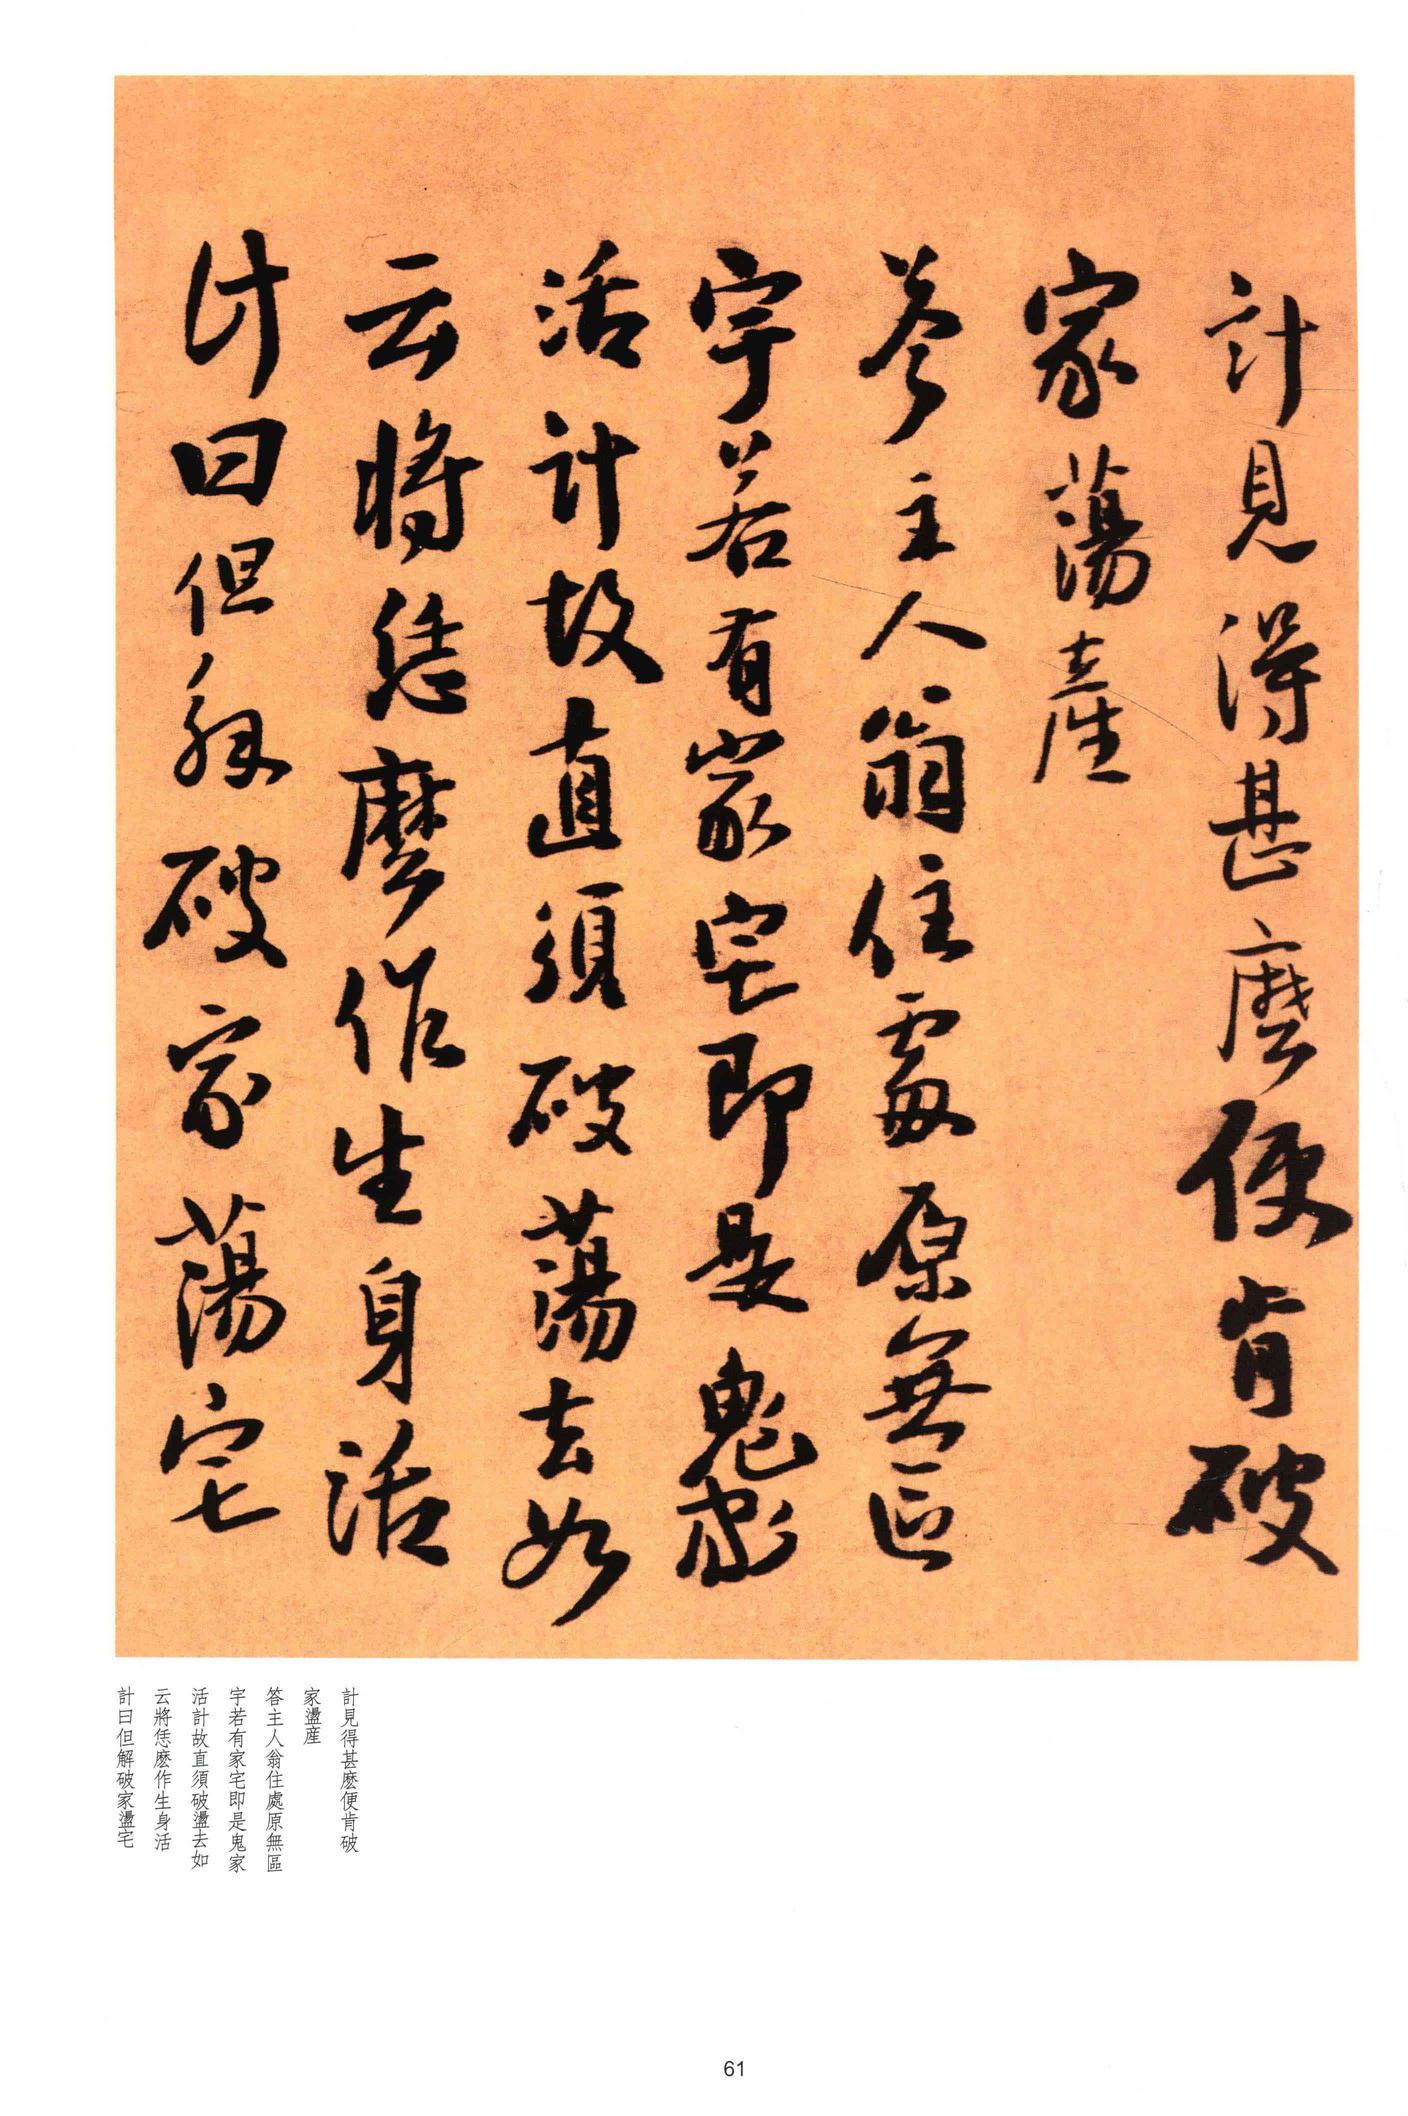 計見得甚麼便肯破
家蕩產
答主人翁住處原無區
宇若有家宅即是鬼家
活計故直須破蕩去如
云將恁麼作生身活
計曰但解破家蕩宅
計見得甚麽便肯破
家盪産
答主人翁住處原無區
宇若有家宅即是鬼家
活計故直須破盪去如
云將恁麽作生身活
計曰但解破家盪宅
61